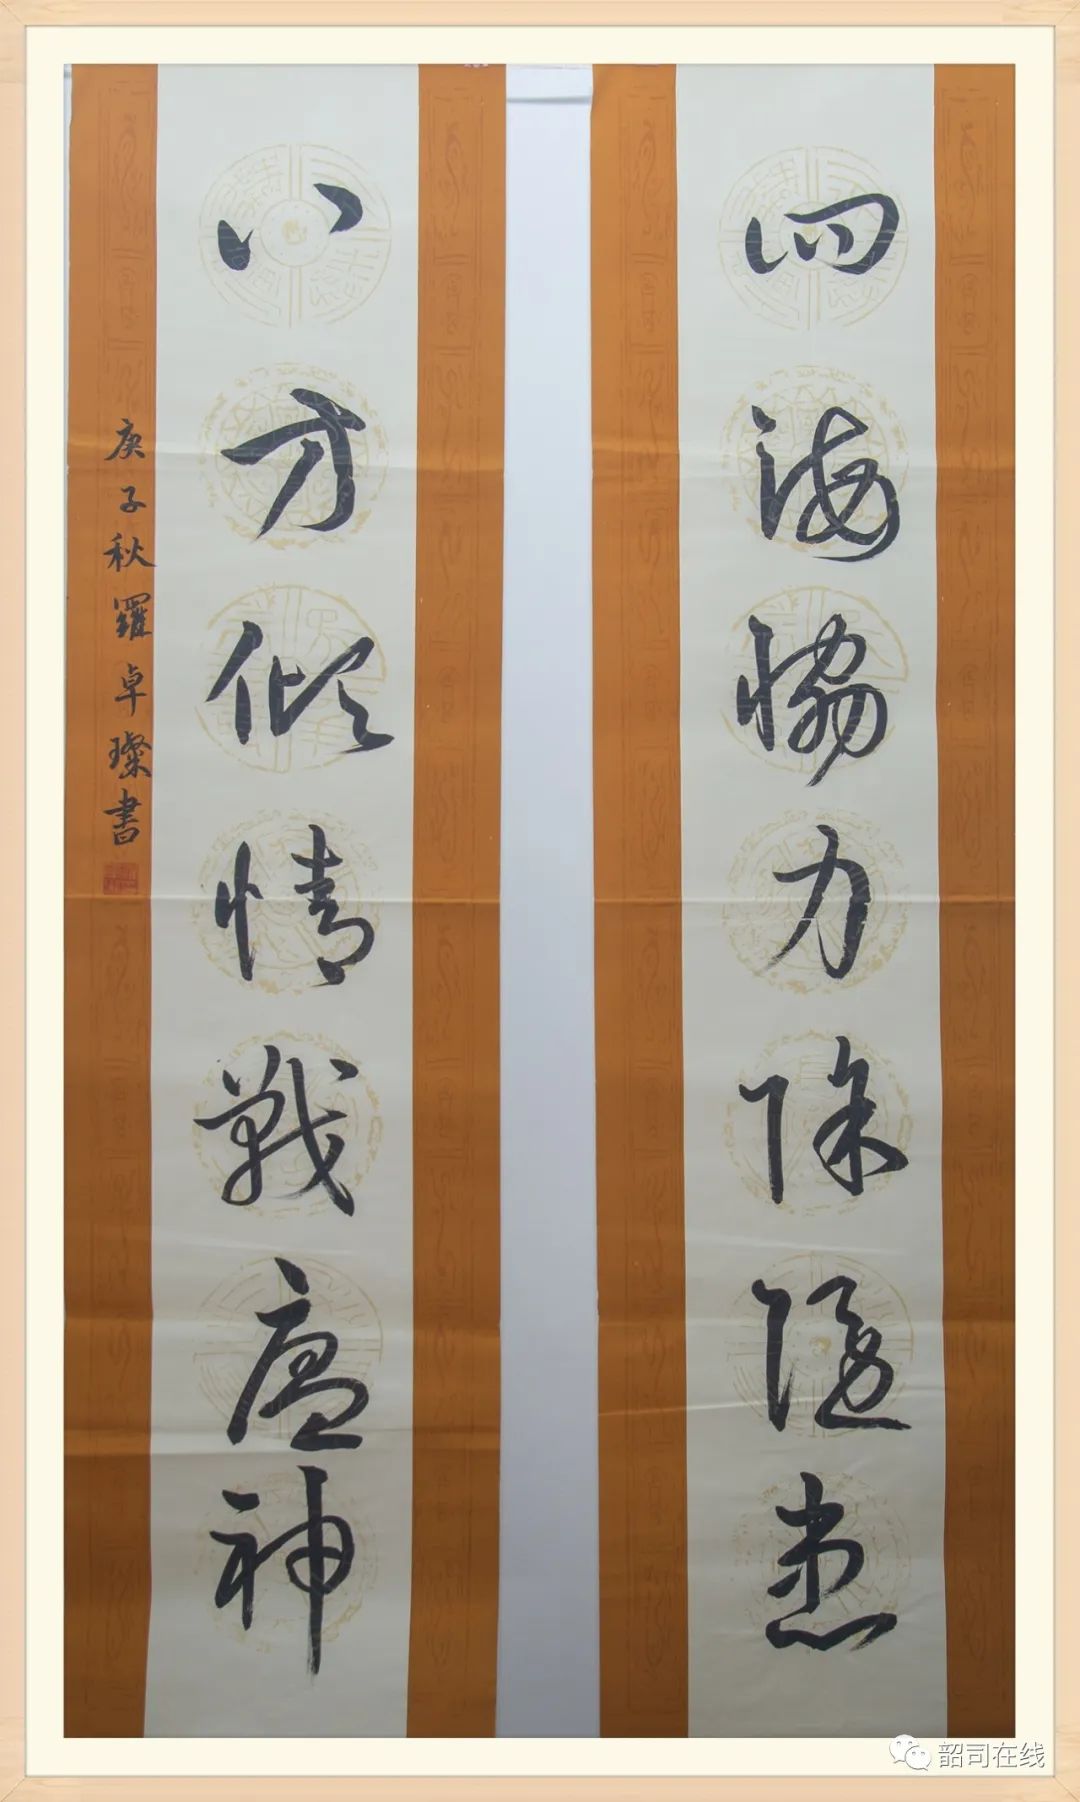 四海恊力除隐患
八方倾情戰瘟神
庚子秋羅卓璨書
韶司在线